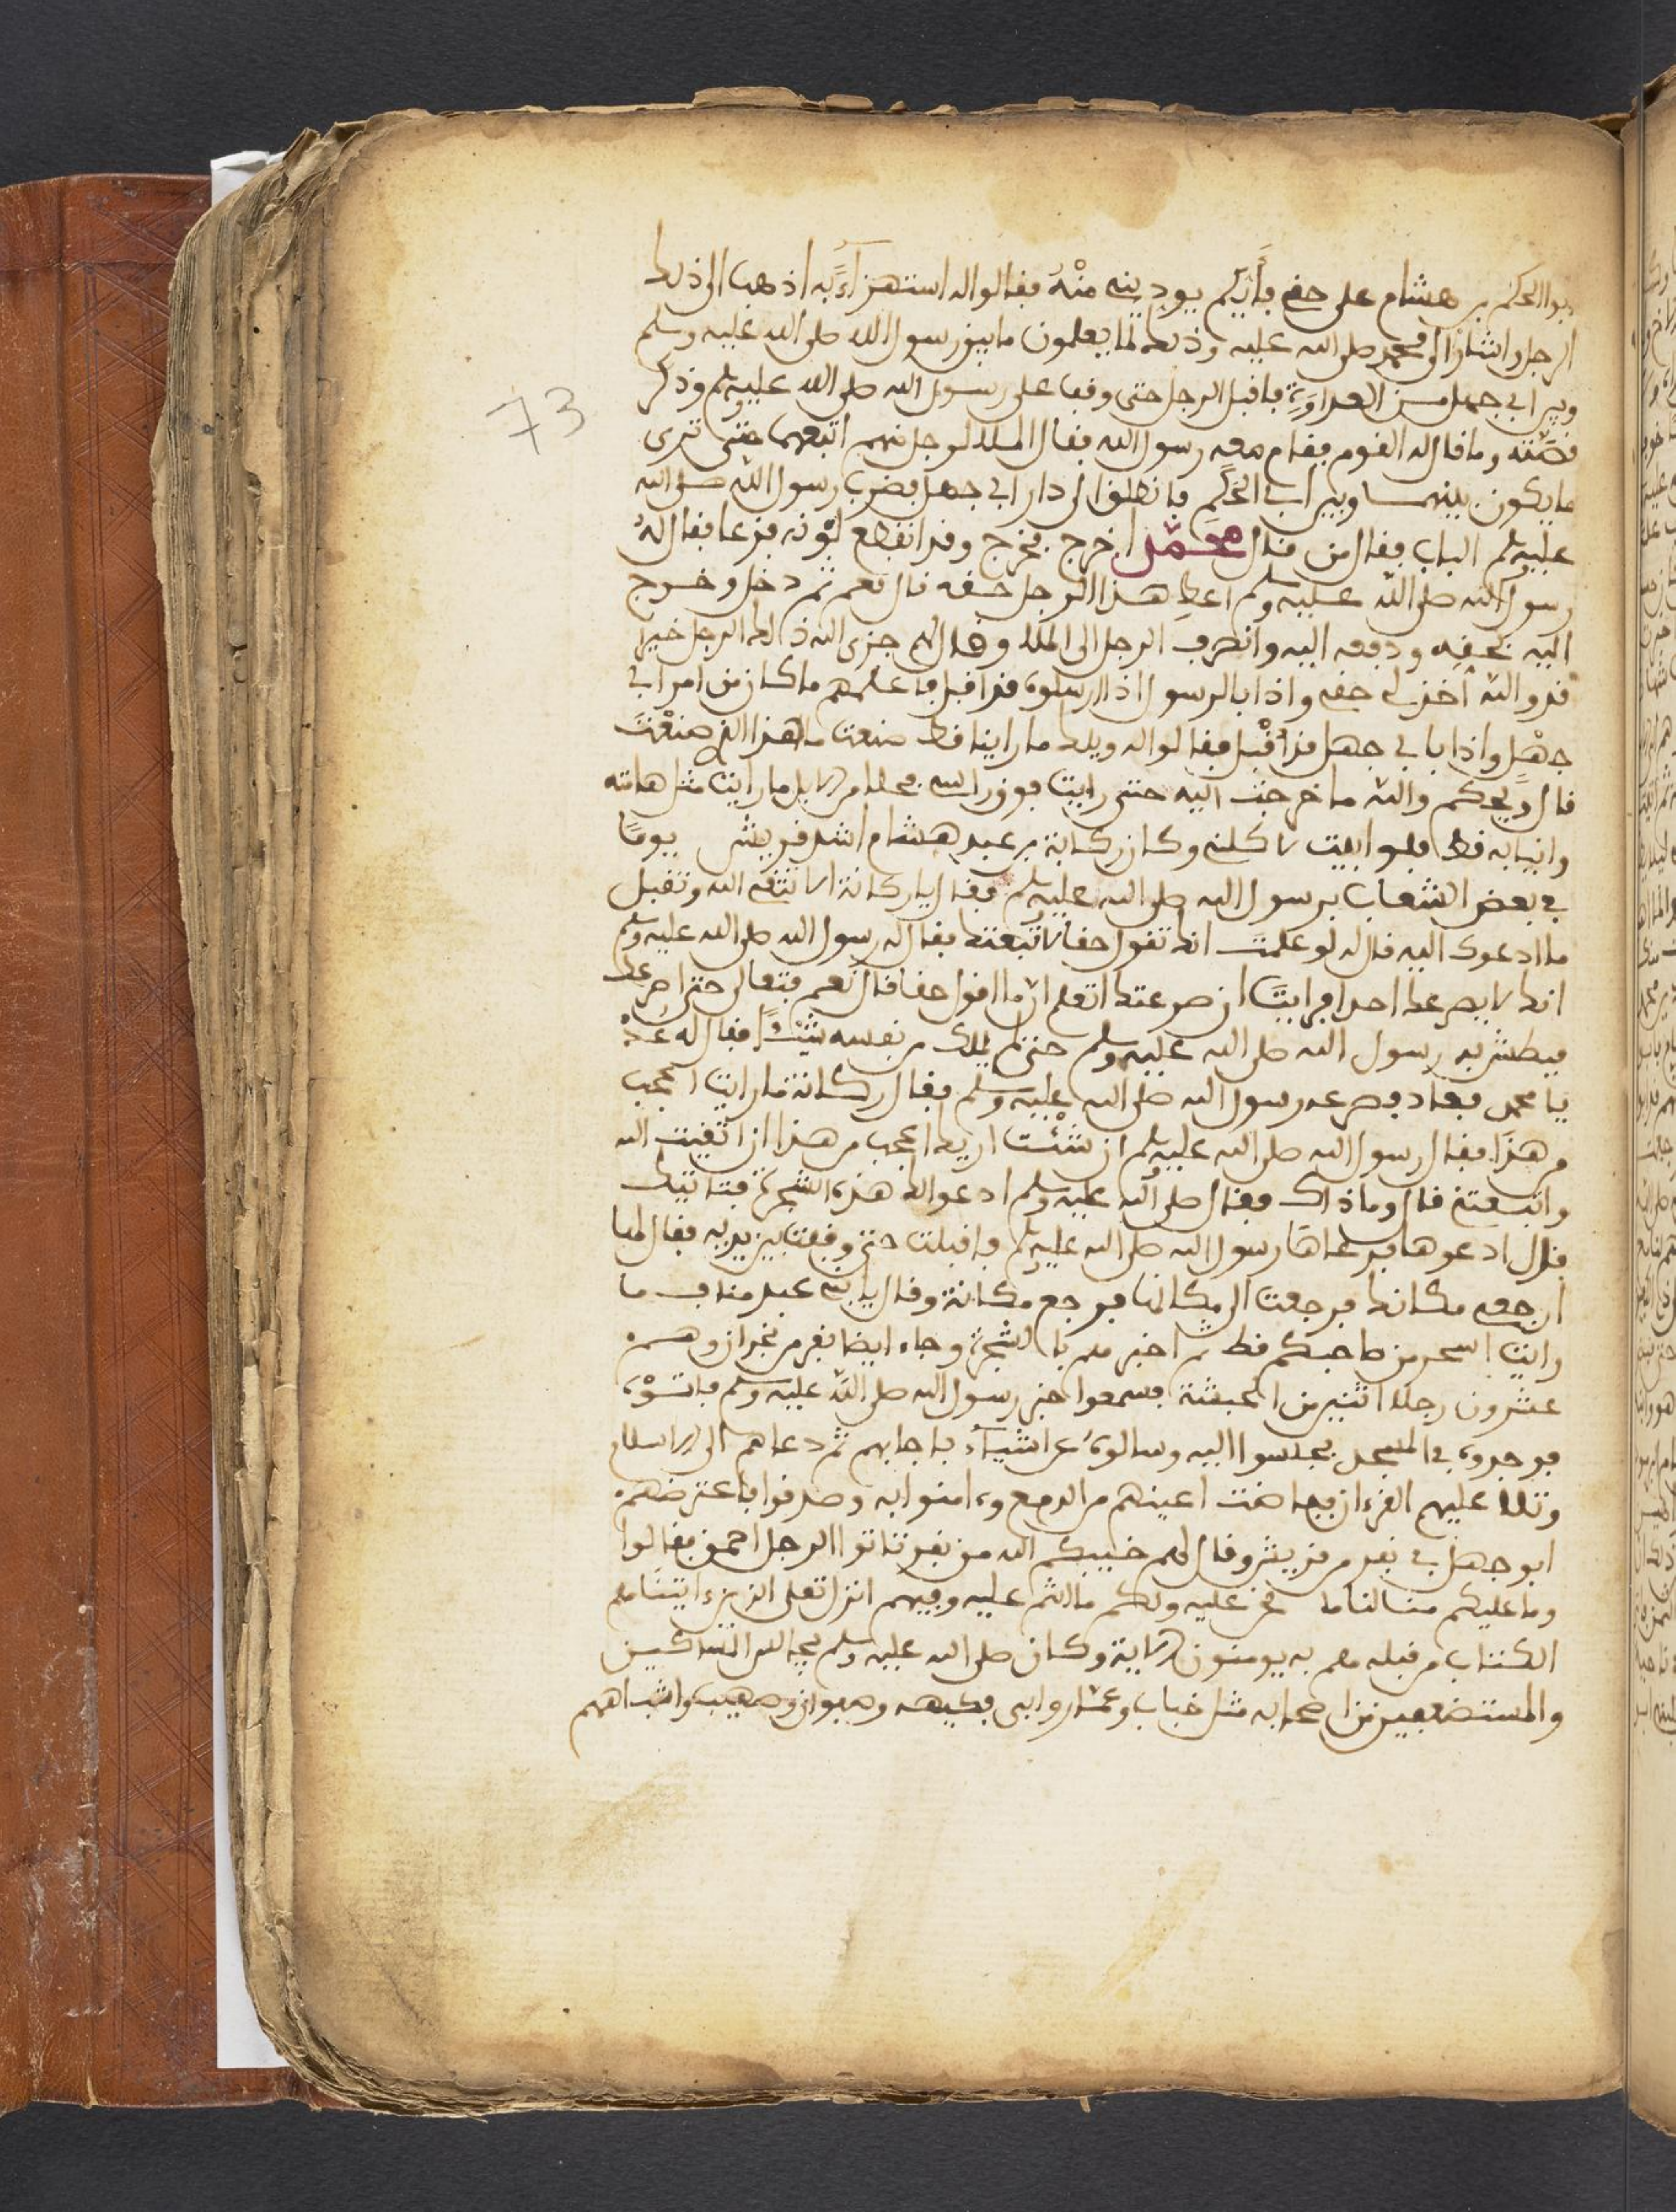 ابو الحكم بن هشام على حقي فايكم يوديني منه فقالوا له استهزاء به اذهب الى ذلك
الرجل واشار الى محمد صلى الله عليه وذلك لما يعلمون ما بين رسول الله صلى الله عليه وسلم
وبين ابي جهل من العداوة فاقبل الرجل حتى وقف على رسول الله صلى الله عليه وسلم وذكر
قصته وما قال له القوم فقام معه رسول الله فقال الملا لرجل منهم اتبعهما حتى ترى
ما يكون بينهما وبين ابي الحكم فانطلق الى دار ابي جهل فضرب رسول الله صلى الله
عليه وسلم الباب فقال من قال محمد اخرج فخرج وقد انقطع لونه فزعا فقال له
رسول الله صلى الله عليه وسلم اعط هذا الرجل حقه قال نعم ثم دخل وخرج
اليه بحقه ودفعه اليه وانصرف الرجل الى الملا وقال لهم جزى الله ذلك الرجل خيرا
قد والله اخذ لي حقي واذا بالرسول اذ ارسلوه قد اقبل فاعلمهم ما كان من امر ابي
جهل واذا بابي جهل قد اقبل فقالوا له ويلك ما راينا قط صنعت ما هذا الذي صنعت
قال ويحكم والله ما خرجت اليه حتى رايت فوق راسي فحلا من الابل ما رايت مثل هامته
وانيابه قط فلو ابيت لاكلني وكان ركانة بن عبد هشام اشد قريش يوما
في بعض الشعاب برسول الله صلى الله عليه وسلم فقال يا ركانة الا تتقي الله وتقبل
ما ادعوك اليه قال له لو علمت انك تقول حقا لاتبعتك فقال له رسول الله صلى الله عليه وسلم
انك لا يصرعك احد افرايت ان صرعتك اتعلم ان ما اقول حقا قال نعم فتعال حتى اصرعك
فبطش به رسول الله صلى الله عليه وسلم حتى لم يملك من نفسه شيئا فقال له عد
يا محمد فعاد فصرعه رسول الله صلى الله عليه وسلم فقال ركانة ما رايت اعجب
من هذا فقال رسول الله صلى الله عليه وسلم ان شئت اريك اعجب من هذا ان اتقيت الله
واتبعتني قال وما ذاك فقال صلى الله عليه وسلم ادعوا لك هذه الشجرة فتاتيك
قال ادعوها فدعاها رسول الله صلى الله عليه وسلم فاقبلت حتى وقفت بين يديه فقال لها
ارجعي مكانك فرجعت الى مكانها فرجع مكانة وقال يا بني عبد مناف ما
رايت اسحر من صاحبكم قط ثم اخبرهم بالشجرة وجاء ايضا نفر من نجران وهم
عشرون رجلا اتين من الحبشة فسمعوا خبر رسول الله صلى الله عليه وسلم فاتوه
فوجدوه في المسجد فجلسوا اليه وسالوه عن اشياء فاجابهم ثم دعاهم الى الاسلام
وتلا عليهم القرءان ففاضت اعينهم من الدمع وءامنوا به وصدقوا فاعترضهم
ابو جهل في نفر من قريش وقال لهم خيبكم الله من نفر تاتوا الرجل احمق فقالوا
وما عليكم منا لنا ما نحن عليه ولكم ما انتم عليه وفيهم انزل تعلى الذين ءاتيناهم
الكتاب من قبله هم به يومنون الاية وكان صلى الله عليه وسلم يجالس المساكين
والمستضعفين من اصحابه مثل خباب وعمار وابي فكيهه وصفوان وصهيب واشباههم
73